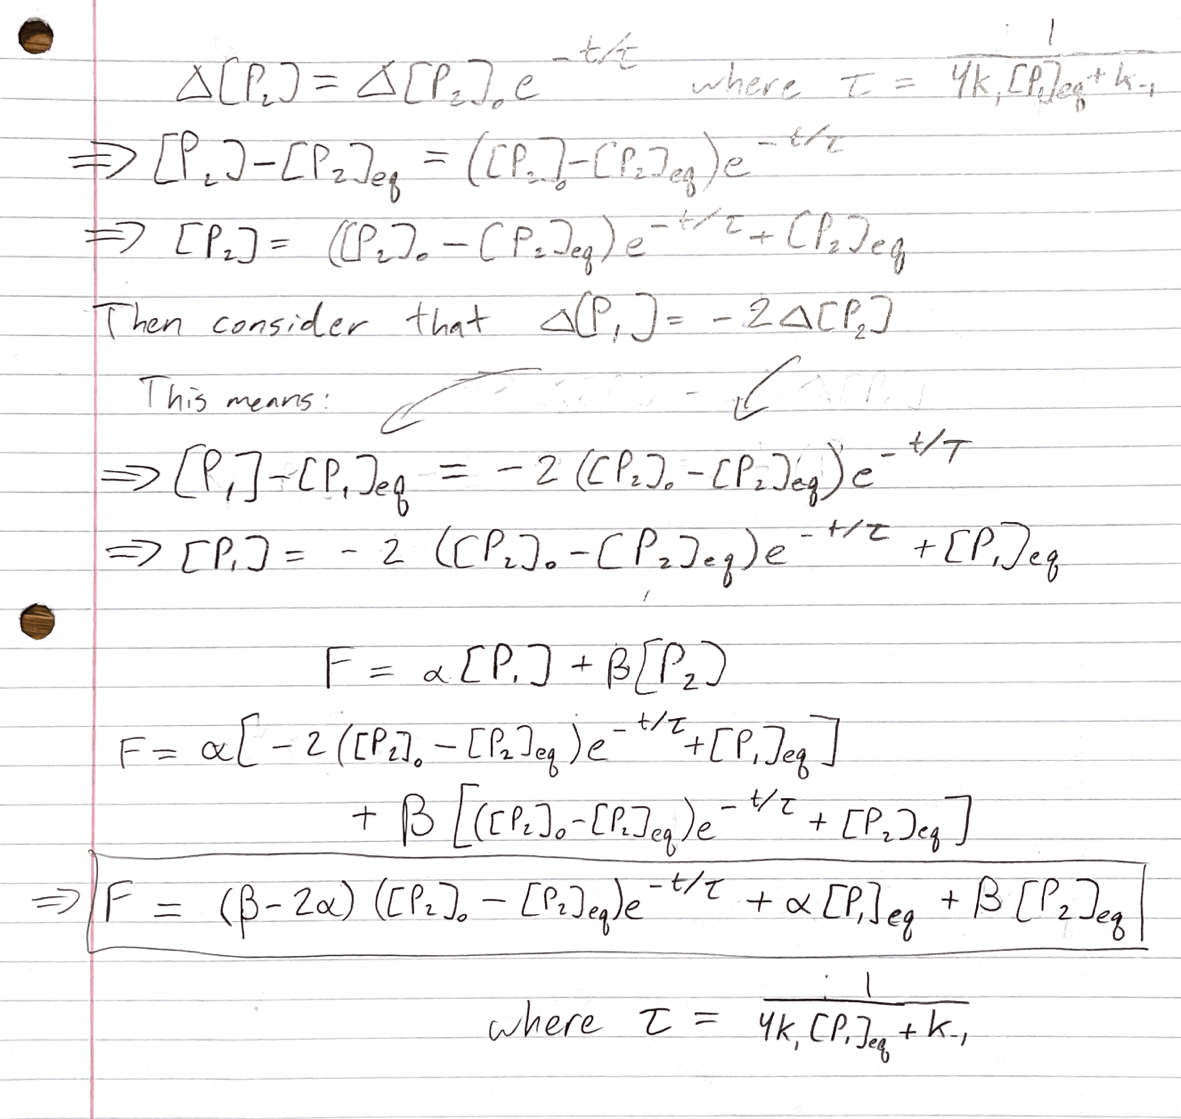 Δ[P₂] = Δ[P₂]₀ e^{-t/τ} where τ = 1/(4k₁[P₁]eq + k₋₁)
⇒ [P₂] - [P₂]eq = ([P₂]₀ - [P₂]eq) e^{-t/τ}
⇒ [P₂] = ([P₂]₀ - [P₂]eq) e^{-t/τ} + [P₂]eq
Then consider that Δ[P₁] = -2Δ[P₂]
This means:
⇒ [P₁] - [P₁]eq = -2 ([P₂]₀ - [P₂]eq) e^{-t/τ}
⇒ [P₁] = -2 ([P₂]₀ - [P₂]eq) e^{-t/τ} + [P₁]eq
F = α[P₁] + β[P₂]
F = α[-2([P₂]₀ - [P₂]eq) e^{-t/τ} + [P₁]eq]
+ β[([P₂]₀ - [P₂]eq) e^{-t/τ} + [P₂]eq]
⇒ F = (β-2α) ([P₂]₀ - [P₂]eq) e^{-t/τ} + α[P₁]eq + β[P₂]eq
where τ = 1/(4k₁[P₁]eq + k₋₁)